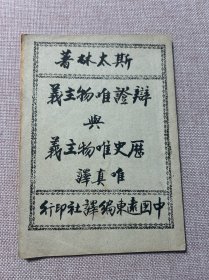 斯太林著
辯證唯物主義
與
歷史唯物主義
唯真譯
中國遠東編譯社印行